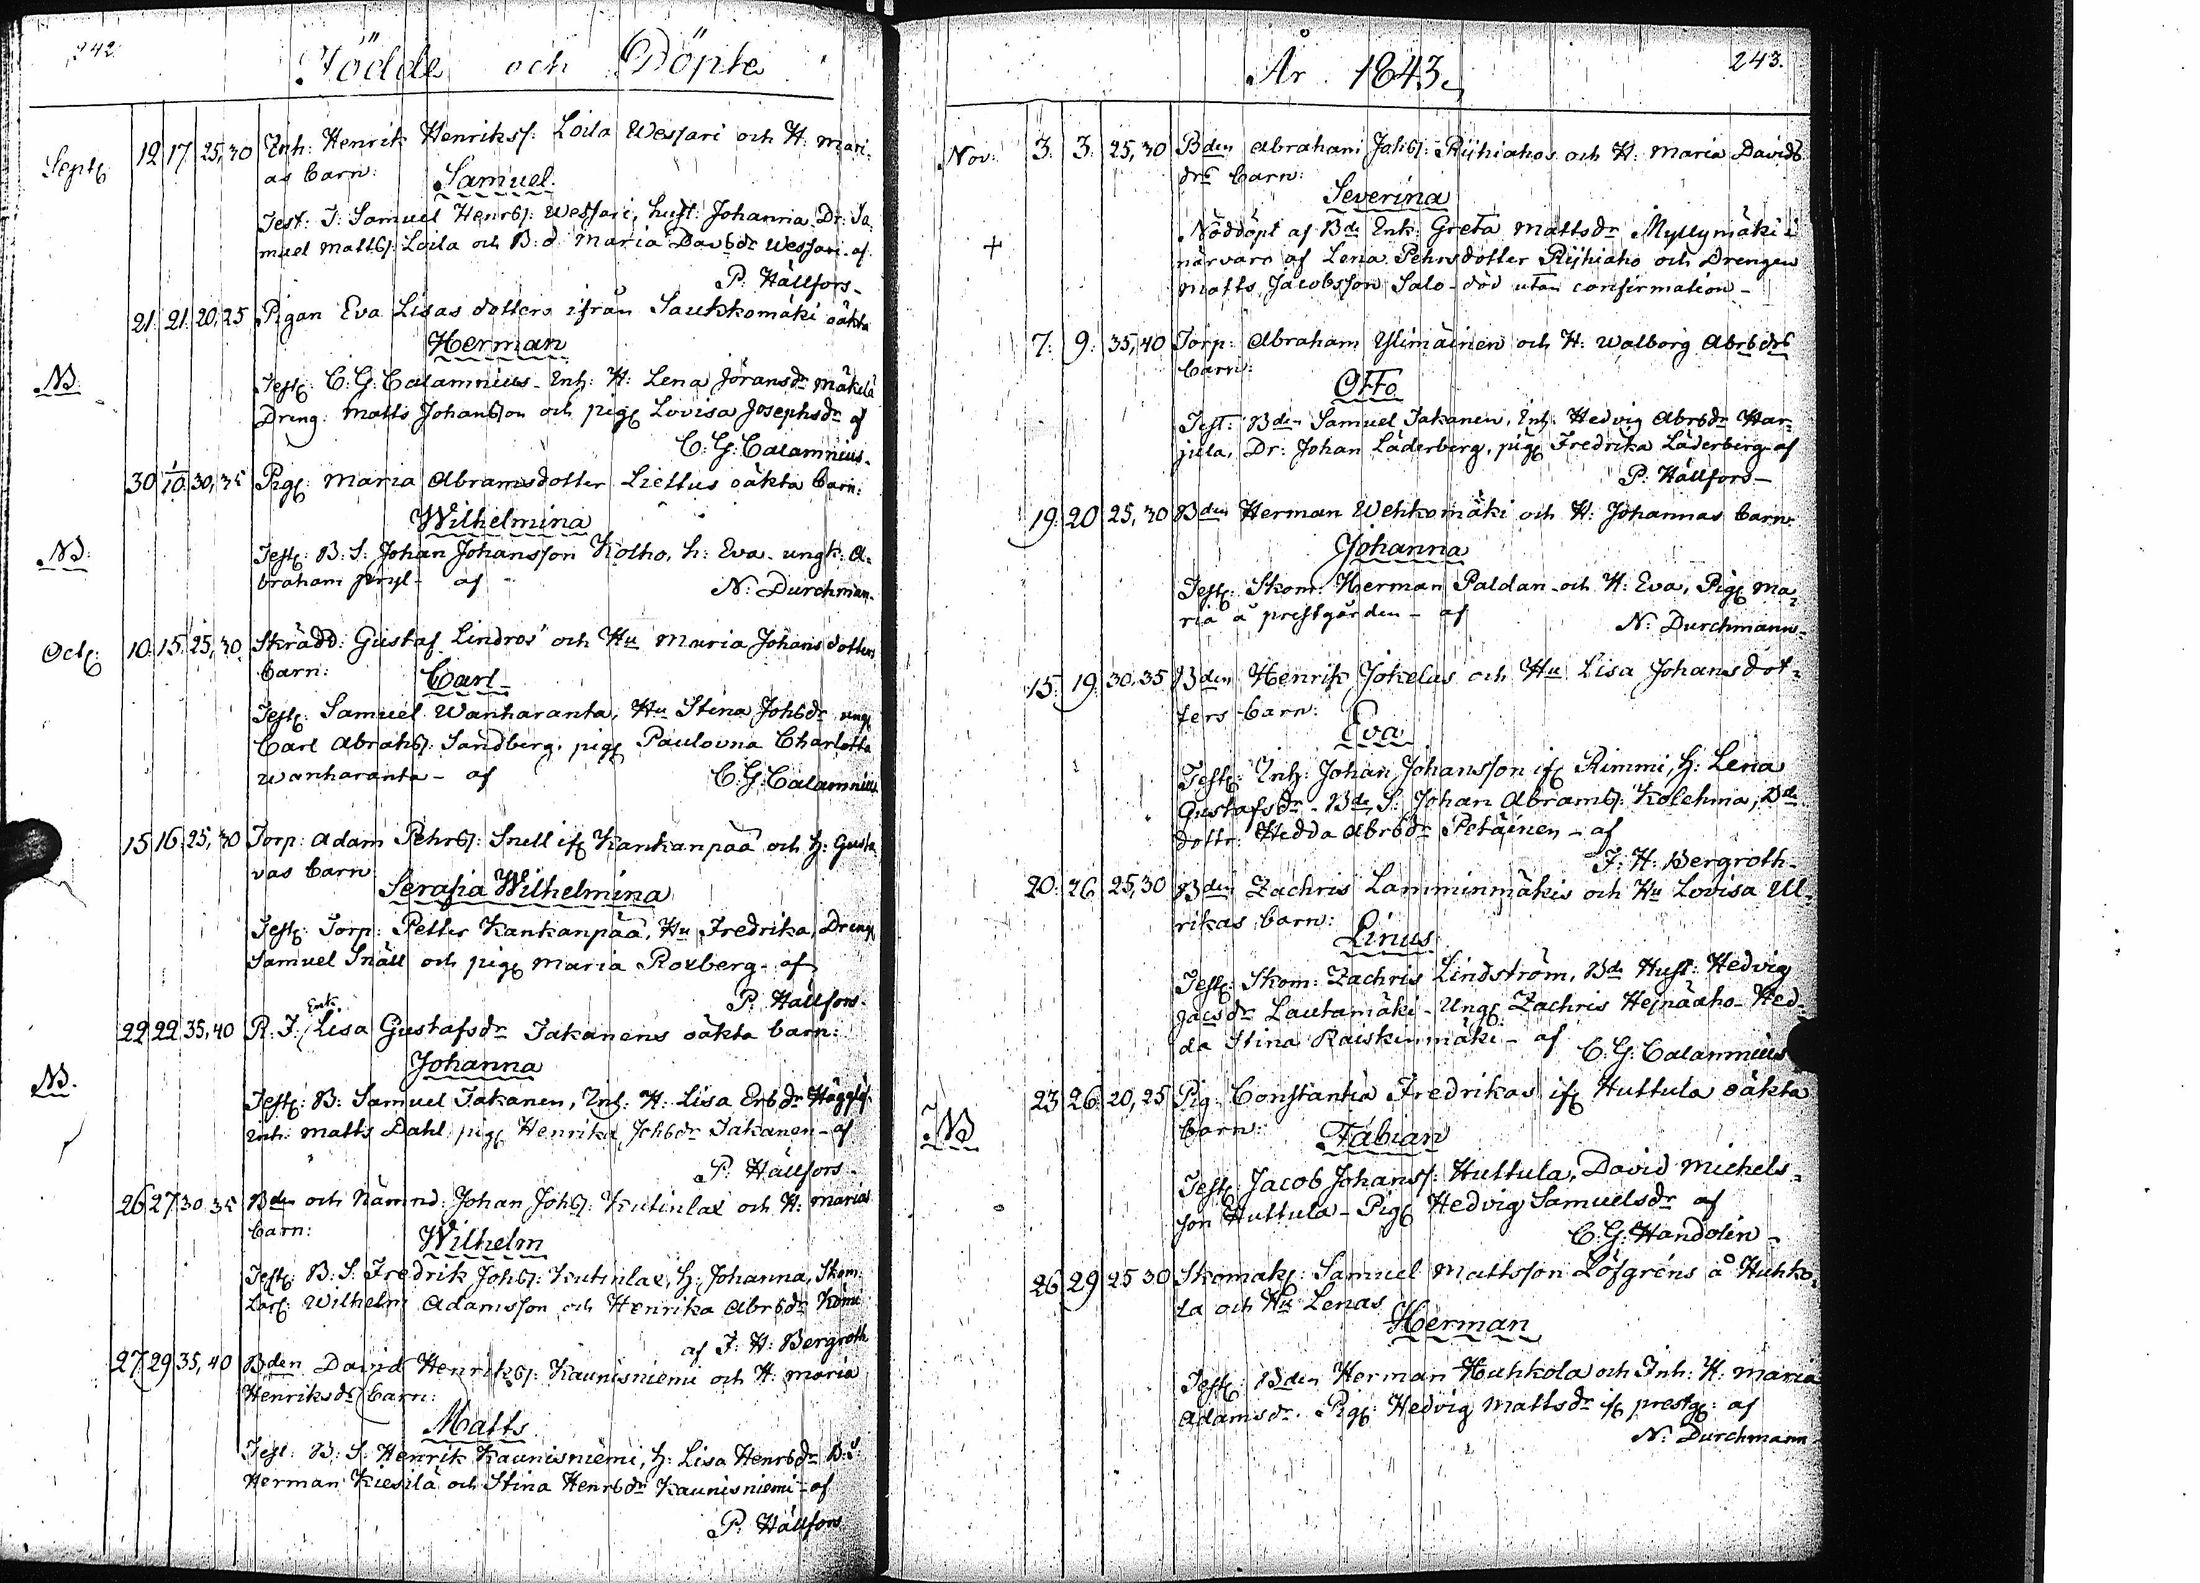 242.
Födde och Döpte
Sept. 12 17 25,30 Inh: Henrik Henrikss: Loila Wessari och H: Mari-
as barn: Samuel
Test: T: Samuel Henrss: Wessari, hust: Johanna Dr: Sa-
muel Mattss: Loila och B:d. Maria Davsdr Wessari af
P. Hällfors
21. 21. 20,25 Pigan Eva Lisas dotters ifrån Saukkomäki oäkta
Herman
NB. Test: C. G. Calamnius Inh: H: Lena Jöransdr Mäkelä
Dreng: Matts Johansson och pig: Lovisa Josephsdr af
C. G: Calamnius.
30 1/10 30,35 Pig: Maria Abramsdotter Liellus oäkta barn:
Wilhelmina
NB. Test: B: S: Johan Johansson Kolho, h: Eva ungk: A-
braham Pryl af
N: Durchman.
Oct: 10. 15. 25,30. Skrädd: Gustaf Lindros och Hu Maria Johansdotters
barn: Carl
Test: Samuel Wanharanta, Hu Stina Johsdr ung:
Carl Abrahss: Sandberg, pig: Paulovna Charlotta
Wanharanta af
C: G: Calamnius
15 16 25,30 Torp: Adam Pehrss: Snell if: Kankanpää och H: Gusta-
vas barn
Serafia Wilhelmina
Test: Torp: Petter Kankanpää, Hu Fredrika, Dreng:
Samuel Snäll och pig: Maria Roxberg af
P. Hällfors.
Enk.
22 22 35,40 R. I. Lisa Gustafsdr Jakanens oäkta barn:
Johanna
NB. Test: B: Samuel Jakanen, Inh: H: Lisa Ersdr
Inh: Matts Dahl pig: Henrika Johsdr Jakanen af
P. Hällfors
26 27 30 35 Bden och Nämnd: Johan Johss: Kutinlax och H: Marias
barn:
Wilhelm
Test: B: S: Fredrik Johss: Kutinlax, H: Johanna, Skom:
Lärl: Wilhelm Adamsson och Henrika Abrsdr
af F: H: Bergroth
27 29 35,40 Bden David Henrikss: Kaunisniemi och H: Maria
Henriksdrs barn:
Matts
Test: B: S: Henrik Kaunisniemi, H: Lisa Henrsdr B:S:
Herman Kiesilä och Stina Henrsdr Kaunisniemi af
P. Hällfors
År 1843.
243.
Nov: 3. 3. 25,30 Bden Abraham Johss: Riihiahos och H: Maria Davids-
drs barn:
Severina
+ Nöddöpt af Bde Enk: Greta Mattsdr Myllymäki i
närvaro af Lena Pehrsdotter Riihiaho och Drengen
Matts Jacobsson Salo död utan confirmation
7. 9. 35,40 Torp: Abraham Ylimäinen och H: Walborg Abrsdrs
barn:
Otto
Test: Bden Samuel Jakanen, Inh: Hedvig Abrsdr Har-
jula, Dr: Johan Läderberg, pig: Fredrika Läderberg af
P. Hällfors
19. 20 25,30 Bden Herman Wehkomäki och H: Johannas barn
Johanna
Test: Skom: Herman Paldan och H: Eva, Pig: Ma-
ria å prestgården af
N: Durchmann
15. 19. 30,35 Bden Henrik Jokelus och Hu Lisa Johansdot-
ters barn:
Eva
Test: Inh: Johan Johansson if: Rimmi, H: Lena
Gustafsdr Bde S: Johan Abramss: Kolehma, Bde
dottr: Hedda Abrsdr Petäinen af
F: H: Bergroth
20. 26 25,30 Bden Zachris Lamminmäkis och Hu Lovisa Ul-
rikas barn:
Linus
Test: Skom: Zachris Lindström, Bde Hust: Hedvig
Jacsdr Lautamäki Ung: Zachris Heinäaho Hed-
da Stina Raiskinmäki af
C: G: Calamnius
NB 23 26 20,25 Pig: Constantia Fredrikas if: Huttula oäkta
barn:
Fabian
Test: Jacob Johanss: Huttula, David Michels-
son Huttula Pig: Hedvig Samuelsdr af
C. G: Handolin
26 29 25 30 Skomak: Samuel Mattsson Löfgréns å Huhko-
la och Hu Lenas
Herman
Test: Bden Herman Huhkola och Inh: H: Maria
Adamsdr. Pig: Hedvig Mattsdr if: prestg: af
N: Durchmann